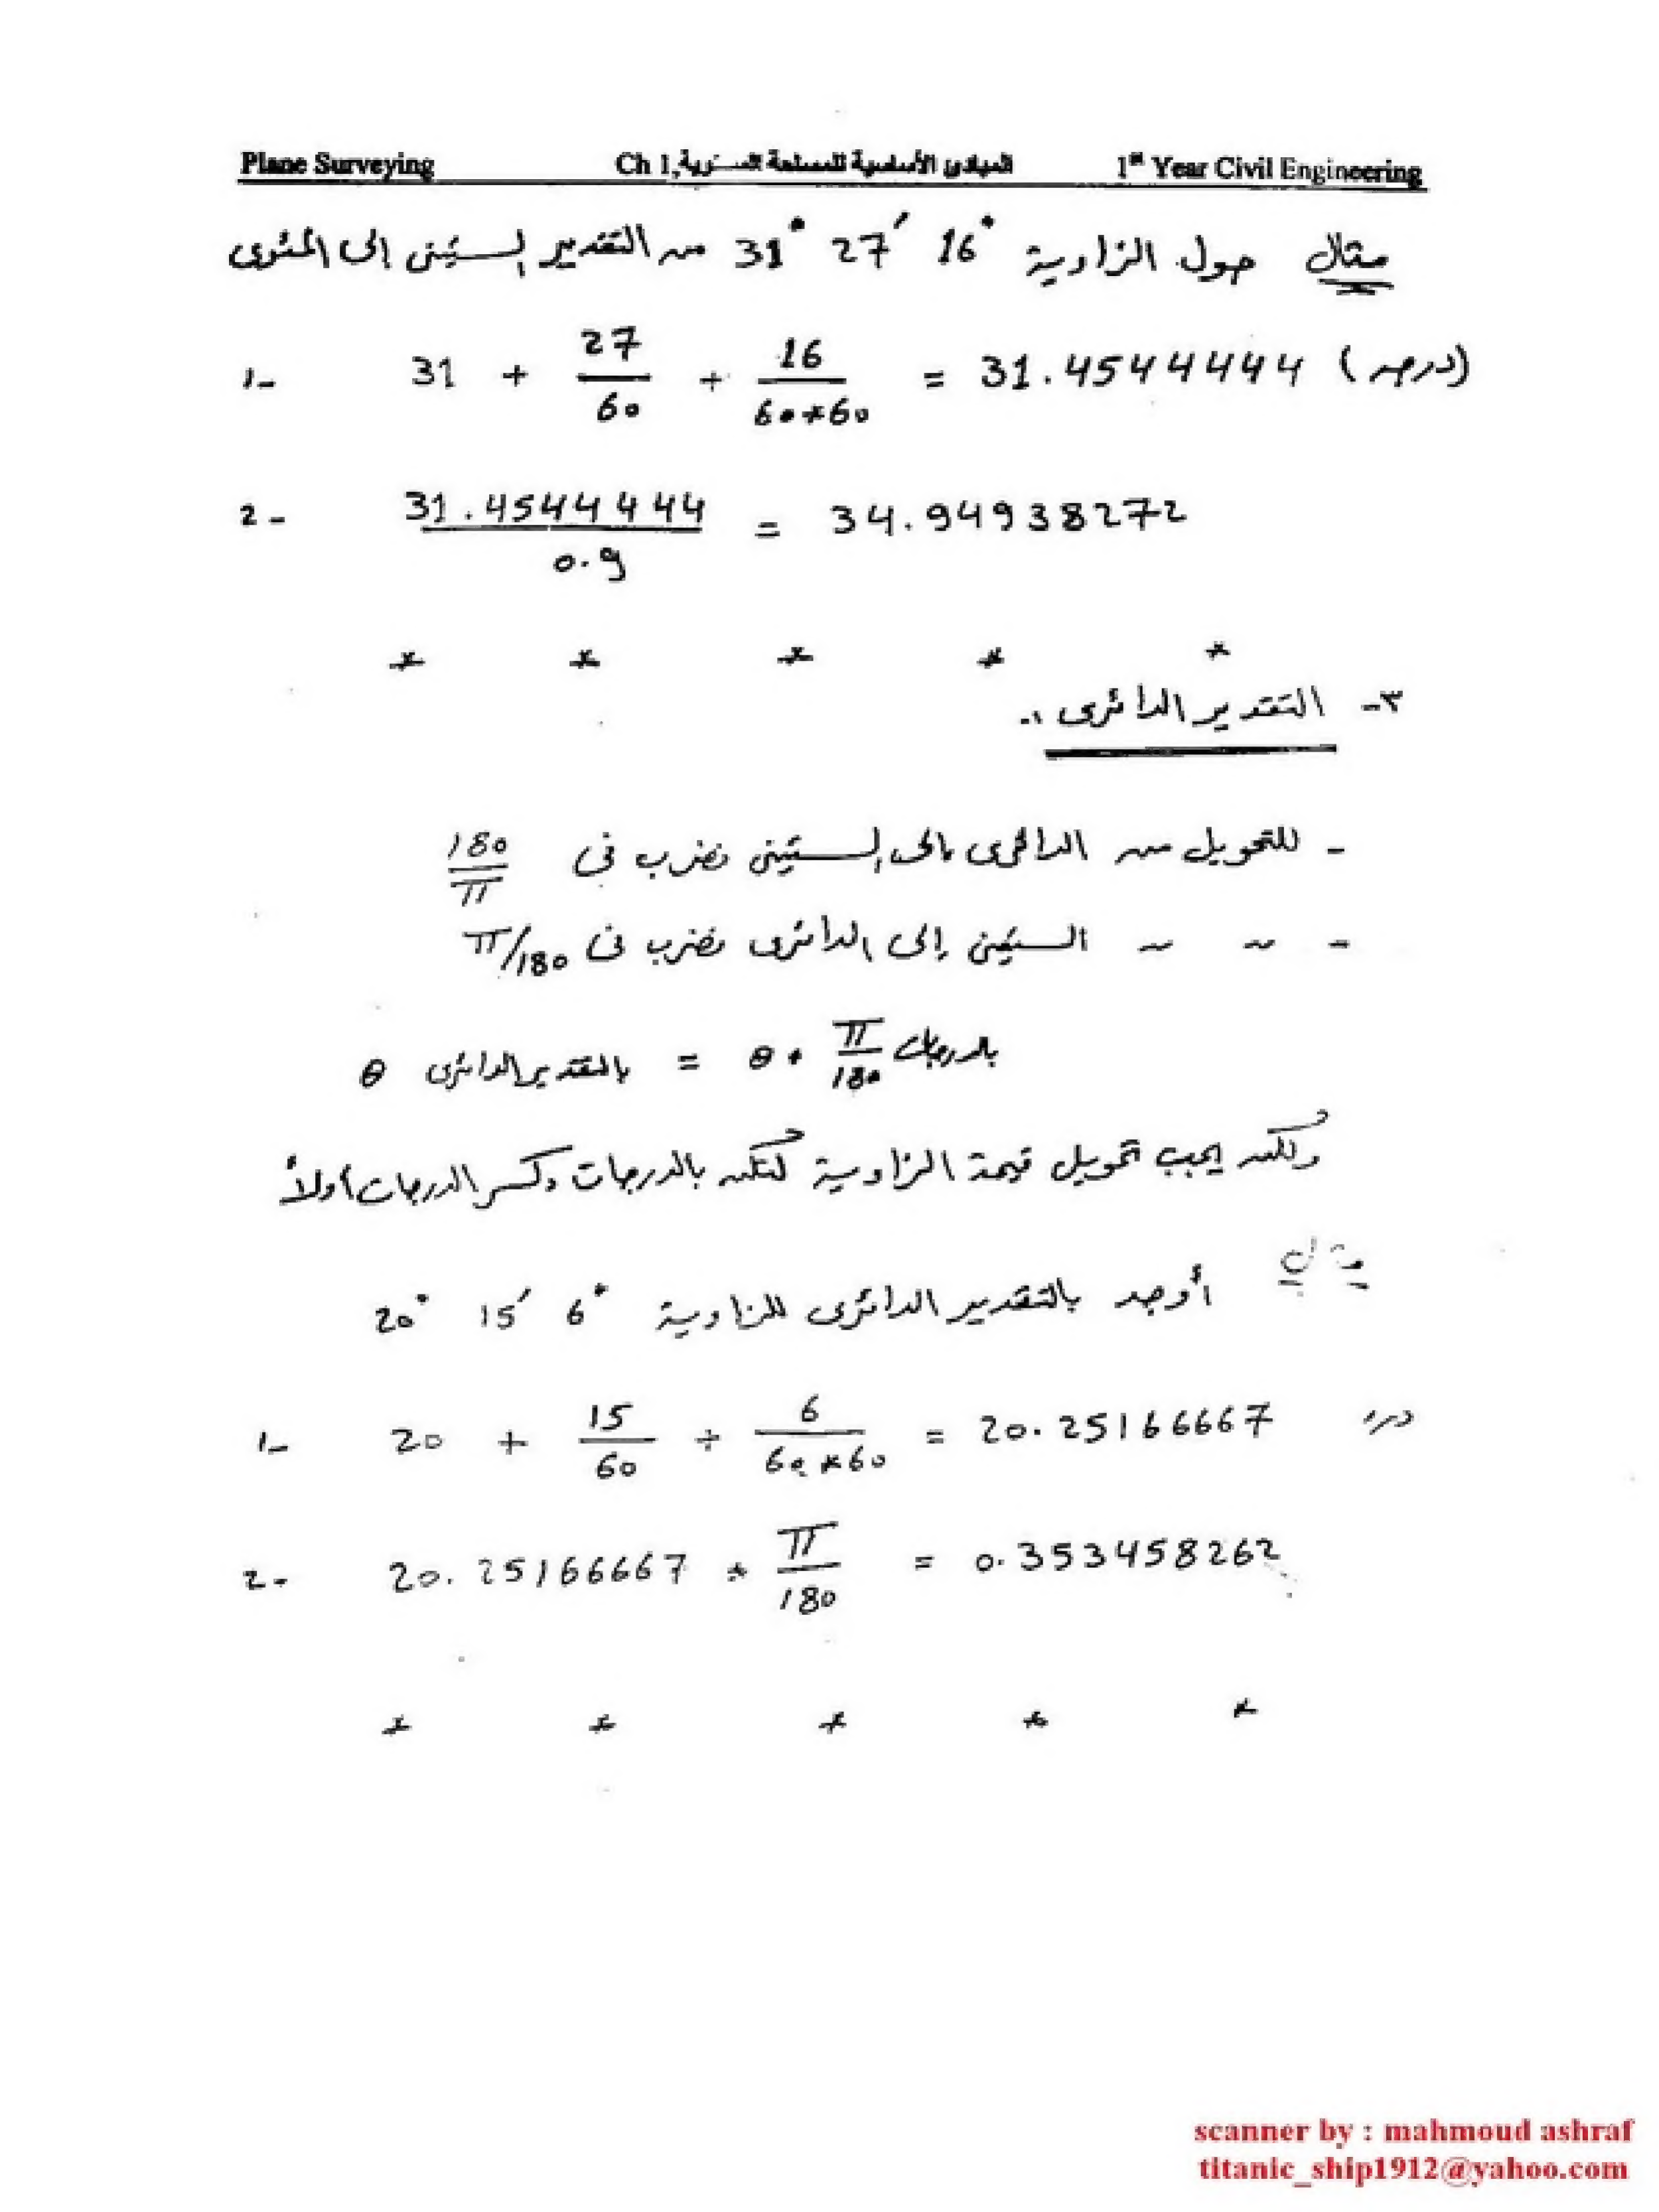 Plane Surveying Ch 1, المبادئ الأساسية للمساحة المستوية 1st Year Civil Engineering
مثال حول الزاوية 31° 27′ 16″ من التقدير الستينى إلى المئوى
1- 31 + 27/60 + 16/60*60 = 31.4544444 (درجه)
2- 31.4544444/0.9 = 34.94938272
* * * * *
٣- التقدير الدائرى :-
- للتحويل من الدائرى إلى الستينى نضرب فى 180/π
- ~ ~ الستينى إلى الدائرى نضرب فى π/180
θ بالتقدير الدائرى = θ * π/180 بالدرجات
ولكن يجب تحويل قيمة الزاوية لتكن بالدرجات وكسر الدرجات أولاً
مثال أوجد بالتقدير الدائرى للزاوية 20° 15′ 6″
1- 20 + 15/60 + 6/60*60 = 20.25166667 درجه
2- 20.25166667 * π/180 = 0.353458262
* * * * *
scanner by : mahmoud ashraf
titanic_ship1912@yahoo.com